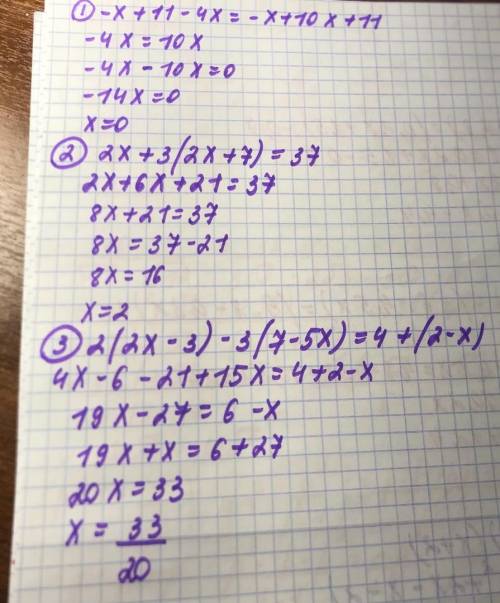 ① -x+11-4x=-x+10x+11
-4x=10x
-4x-10x=0
-14x=0
x=0
② 2x+3(2x+7)=37
2x+6x+21=37
8x+21=37
8x=37-21
8x=16
x=2
③ 2(2x-3)-3(7-5x)=4+(2-x)
4x-6-21+15x=4+2-x
19x-27=6-x
19x+x=6+27
20x=33
x=33/20